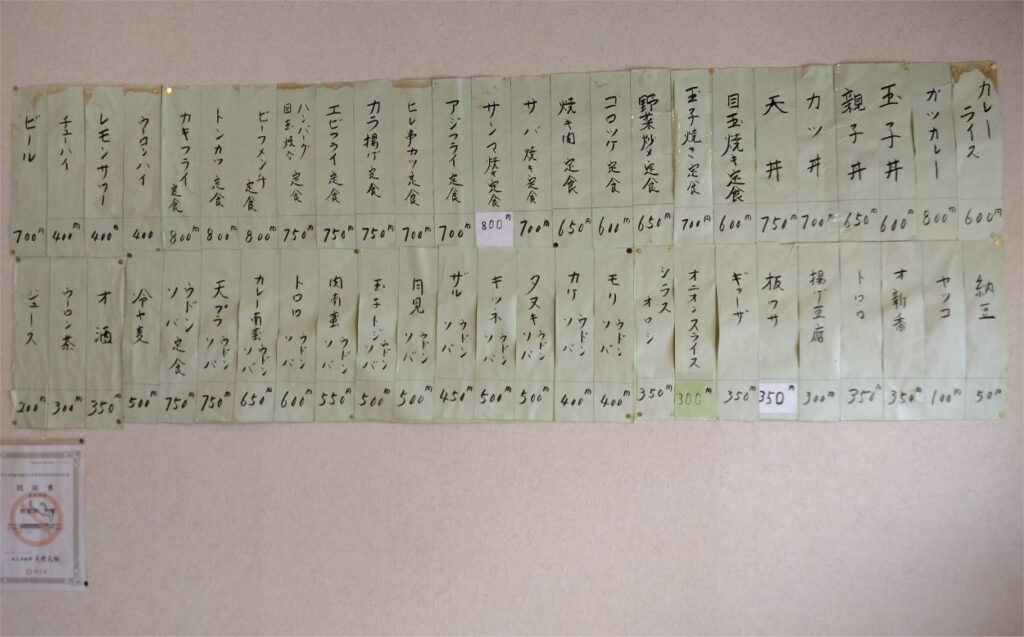 カレーライス 600円
カツカレー 800円
玉子丼 600円
親子丼 650円
カツ丼 700円
天丼 750円
目玉焼き定食 600円
玉子焼き定食 700円
野菜炒め定食 650円
コロッケ定食 600円
焼き肉定食 650円
サバ焼き定食 700円
サンマ焼き定食 800円
アジフライ定食 700円
ヒレ串カツ定食 700円
カラ揚げ定食 750円
エビフライ定食 750円
ハンバーグ目玉焼介定食 750円
ビーフメンチ定食 800円
トンカツ定食 800円
カキフライ定食 800円
ウーロンハイ 400
レモンサワー 400円
チューハイ 400円
ビール 700円
納豆 50円
ヤッコ 100円
オ新香 350円
トロロ 350円
揚げ豆腐 300円
板ワサ 350円
ギョーザ 350円
オニオンスライス 300円
シラスオロシ 350円
モリウドンソバ 400円
カケウドンソバ 400円
タヌキウドンソバ 500円
キツネウドンソバ 500円
ザルウドンソバ 450円
月見ウドンソバ 500円
玉子トジウドンソバ 500円
肉南蛮ウドンソバ 550円
トロロウドンソバ 600円
カレー南蛮ウドンソバ 650円
天プラウドンソバ 750円
ウドンソバ定食 750円
冷ヤ麦 500円
オ酒 350円
ウーロン茶 300円
ジュース 200円
認証書